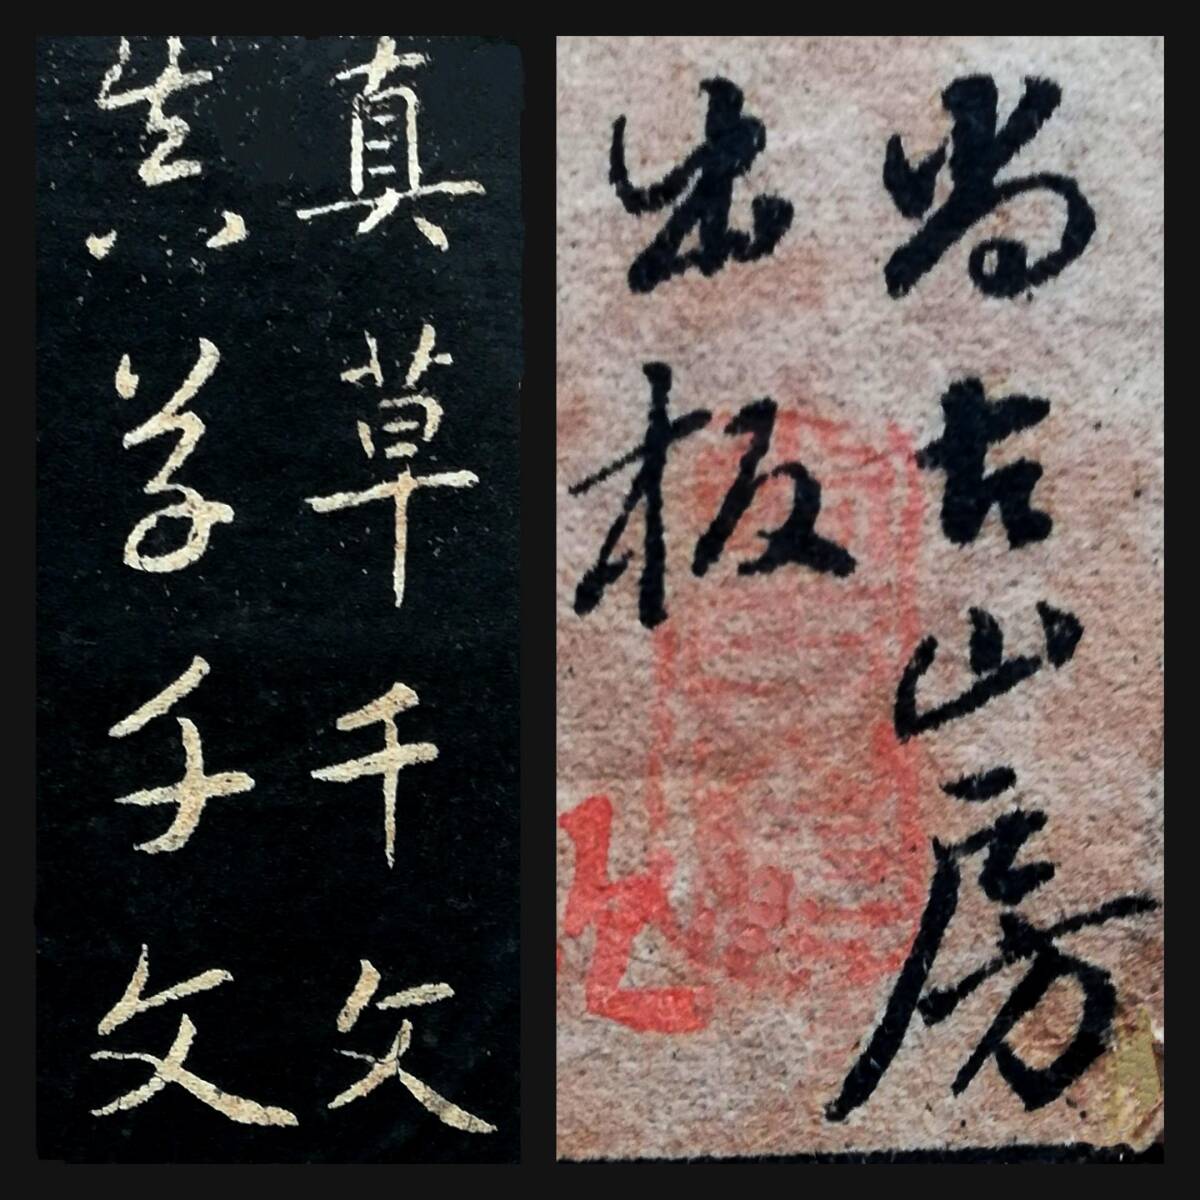 真草千文
真草千文
尚古山房
出板